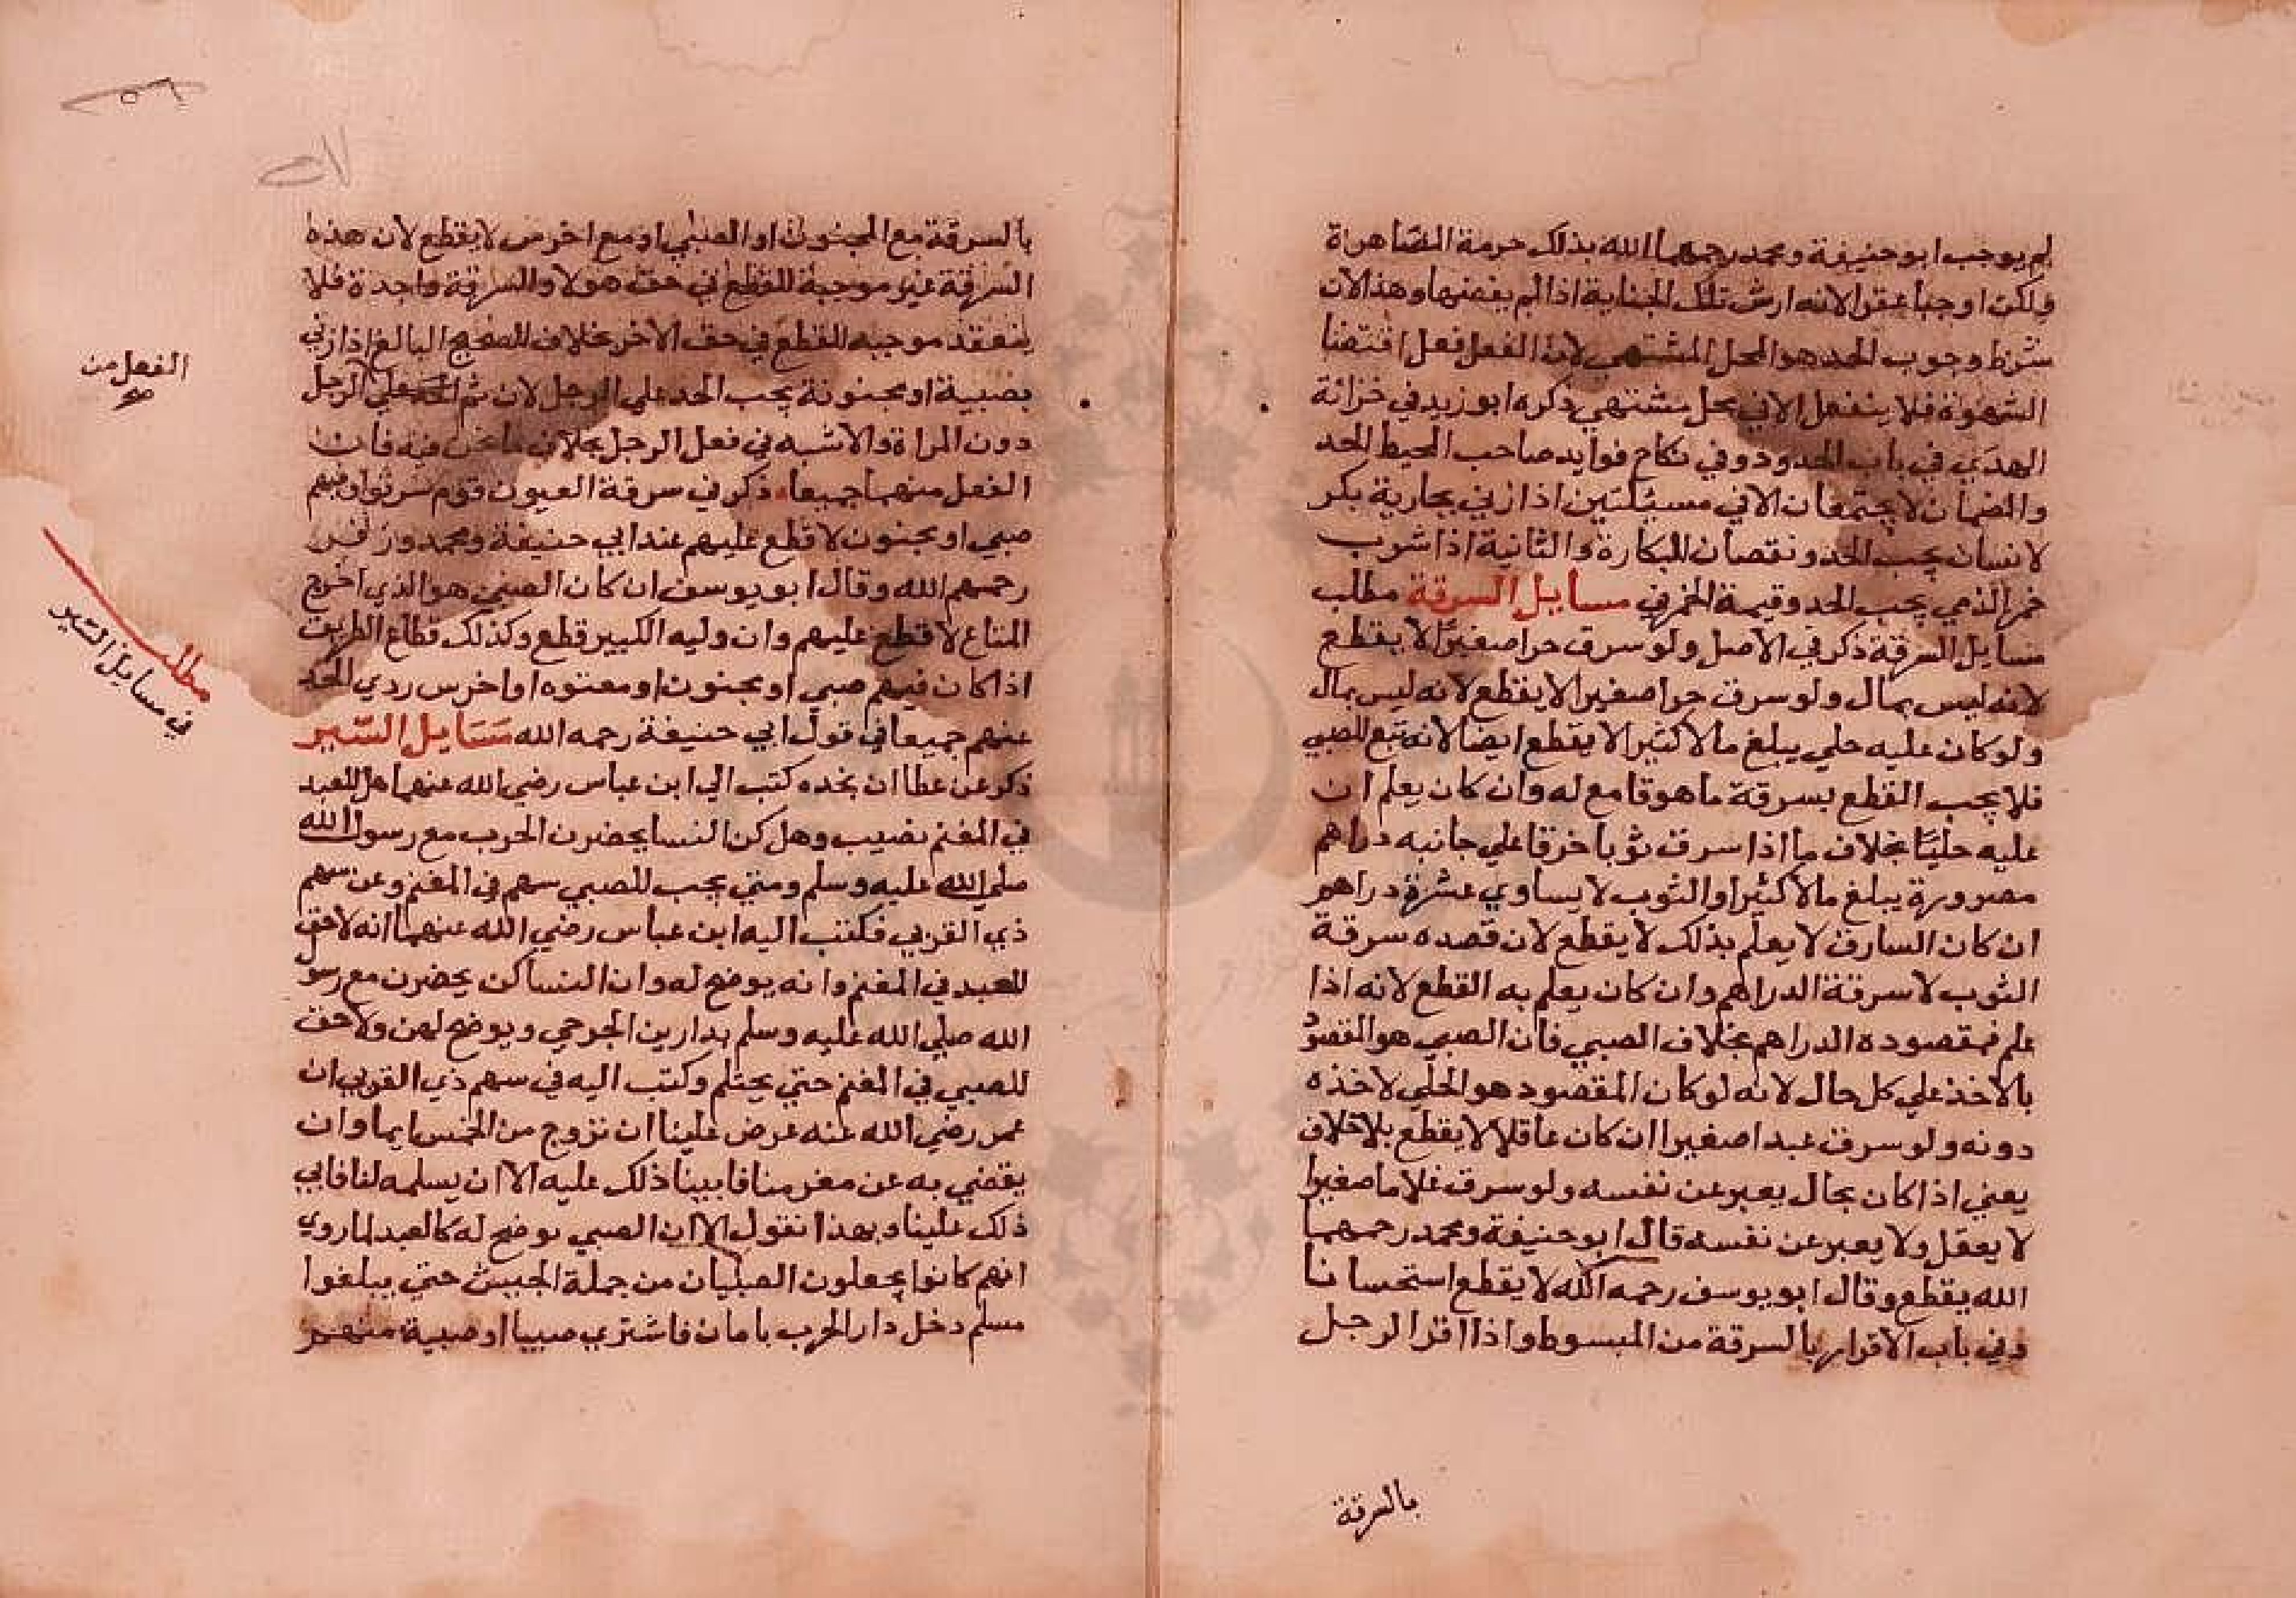 لم يوجب ابو حنيفة ومحمد رحمهما الله بذلك حرمة المصاهرة
ولكن اوجبا عقرا لانه ارش تلك الجناية اذا لم يفضها وهذا لان
شرط وجوب الحد هو المحل المشتهى لان الفعل فعل اقتضا
الشهوة فلا ينفعل الا في محل مشتهي ذكره ابو زيد في خزانة
الهدي في باب الحدود وفي نكاح فوايد صاحب المحيط الحد
والضمان لا يجتمعان الا في مسئلتين اذا زني بجارية بكر
لانسان يجب الحد ونقصان البكارة والثانية اذا شرب
خمر الذمي يجب الحد وقيمة الخمر في مسايل السرقة مطلب
مسايل السرقة ذكر في الاصل ولو سرق حرا صغيرا لا يقطع
لانه ليس بمال ولو سرق حرا صغيرا لا يقطع لانه ليس بمال
ولو كان عليه حلي يبلغ مالا كثيرا لا يقطع ايضا لانه تبع للصبي
فلا يجب القطع بسرقة ما هو قامع له وان كان يعلم ان
عليه حليا بخلاف ما اذا سرق ثوبا خرقا علي جانبه دراهم
مصرورة يبلغ مالا كثيرا والثوب لا يساوي عشرة دراهم
ان كان السارق لا يعلم بذلك لا يقطع لان قصده سرقة
الثوب لا سرقة الدراهم وان كان يعلم به القطع لانه اذا
علم فمقصوده الدراهم بخلاف الصبي فان الصبي هو المقصود
بالاخذ علي كل حال لانه لو كان المقصود هو الحلي لاخذه
دونه ولو سرق عبدا صغيرا ان كان عاقلا لا يقطع بلا خلاف
يعني اذا كان بحال يعبر عن نفسه ولو سرق غلاما صغيرا
لا يعقل ولا يعبر عن نفسه قال ابو حنيفة ومحمد رحمهما
الله يقطع وقال ابو يوسف رحمه الله لا يقطع استحسانا
وفي باب الاقرار بالسرقة من المبسوط واذا اقر الرجل
بالسرقة
بالسرقة مع المجنون او الصبي او مع اخرس لا يقطع لان هذه
السرقة غير موجبة للقطع في حق هولا والسرقة واحدة فلا
ينعقد موجبه للقطع في حق الاخر بخلاف الصحيح البالغ اذا زني
بصبية او مجنونة يجب الحد علي الرجل لان ثم علي الرجل
دون المراة ولا شبه في فعل الرجل بخلاف ما نحن فيه فان
الفعل منهما جميعا ذكر في سرقة العيون قوم سرقوا وفيهم
صبي او مجنون لا قطع عليهم عند ابي حنيفة ومحمد وزفر
رحمهم الله وقال ابو يوسف ان كان الصبي هو الذي اخرج
المتاع لا قطع عليهم وان وليه الكبير قطع وكذلك قطاع الطريق
اذا كان فيهم صبي او مجنون او معتوه او اخرس ردي الحد
عنهم جميعا في قول ابي حنيفة رحمه الله مسايل السير
ذكر عن عطا ان نجده كتب الي ابن عباس رضي الله عنهما هل للعبد
في المغنم نصيب وهل كن النسا يحضرن الحرب مع رسول الله
صلي الله عليه وسلم ومتي يجب للصبي سهم في المغنم وعن سهم
ذي القربي فكتب اليه ابن عباس رضي الله عنهما انه لا حق
للعبد في المغنم وانه يوضح له وان النسا كن يحضرن مع رسول
الله صلي الله عليه وسلم يداوين الجرحي ويوضح لهن ولا حق
للصبي في المغنم حتي يحتلم وكتب اليه في سهم ذي القربي ان
عمر رضي الله عنه عرض علينا ان نزوج من الخمس ايما وان
يقضي به عن مغرمنا فابينا ذلك عليه الا ان يسلمه لنا فابي
ذلك علينا وبهذا نقول الا ان الصبي يوضح له كالعبد لما روي
انهم كانوا يجعلون الصبيان من جملة الجيش حتي يبلغوا
مسلم دخل دار الحرب بامان فاشتري صبيا او صبية منهم
الفعل من
صح
مطلب
في مسايل السير